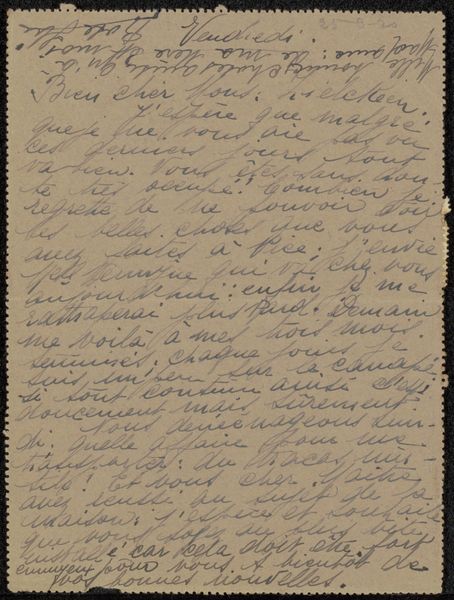 25-9-20
Vendredi.
Mille choses
de ma Mère et moi
Bien cher Mons:
J'espère que malgré
que je ne vous aie pas vu
ces derniers jours tout
va bien. Vous êtes sans dou-
te très occupé! Combien je
regrette de ne pouvoir voir
les belles choses que vous
avez faites à J'envie
qui va chez vous
aujourd'hui: enfin je me
rattraperai plus tard. Demain
me voilà à mes trois mois
terminés. chaque jour je
suis un peu sur le canapé
si tout continue ainsi
doucement mais sûrement.
Nous déménageons lun-
di. quelle affaire pour me
transporter: du tracas inu-
tile! Et vous cher Maître
avez réussi au sujet de la
maison: j'espère et souhaite
que vous soyez au plus vite
installé car cela doit être fort
ennuyeux pour vous. A bientôt de
vos bonnes nouvelles.